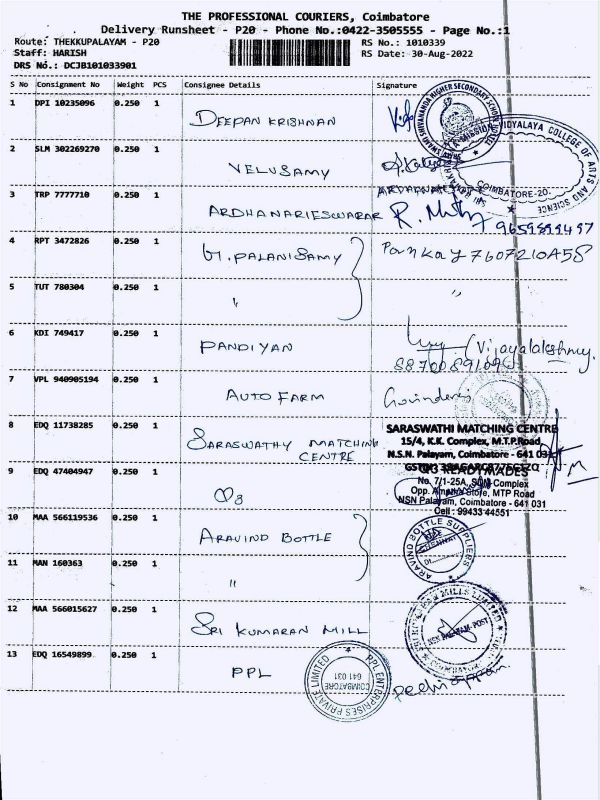 THE PROFESSIONAL COURIERS, Coimbatore
Delivery Runsheet - P20 - Phone No.:0422-3505555 - Page No.:1
Route: THEKKUPALAYAM - P20
RS No.: 1010339
Staff: HARISH
RS Date: 30-Aug-2022
DRS No.: DCJB101033901
S No Consignment No Weight PCS Consignee Details Signature
1 DPI 10235096 0.250 1 DEEPAN KRISHNAN
SWAMI SHIVANANDA HIGHER SECONDARY SCHOOL
VIDYALAYA COLLEGE OF ARTS AND SCIENCE
COIMBATORE-20
2 SLM 302269270 0.250 1 VELUSAMY
3 TRP 7777710 0.250 1 ARDHANARIESWARAR
4 RPT 3472826 0.250 1 M.PALANISAMY Pankay 7607210A58
5 TUT 780304 0.250 1 " "
6 KDI 749417 0.250 1 PANDIYAN (Vijayalakshmy.
7 VPL 940905194 0.250 1 AUTO FARM
8 EDQ 11738285 0.250 1 SARASWATHY MATCHING CENTRE
SARASWATHI MATCHING CENTRE
15/4, K.K. Complex, M.T.P.Road,
N.S.N. Palayam, Coimbatore - 641 031
9 EDQ 47404947 0.250 1 O3
O3 READYMADES
No. 7/1-25A, SUN Complex
Opp. Amman Store, MTP Road
NSN Palayam, Coimbatore - 641 031
Cell : 99433 44551
10 MAA 566119536 0.250 1 ARAVIND BOTTLE
ARAVIND BOTTLE SUPPLIERS
11 MAN 160363 0.250 1 "
12 MAA 566015627 0.250 1 SRI KUMARAN MILL
13 EDQ 16549899 0.250 1 PPL
PPL ENTERPRISES PRIVATE LIMITED
COIMBATORE
641 031